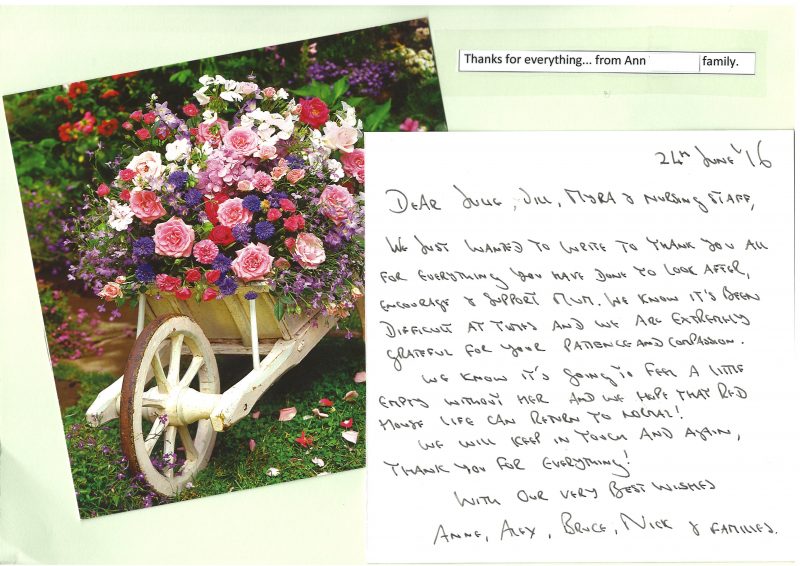 Thanks for everything... from Ann family.
24th June '16
Dear Julie, Jill, Myra & Nursing Staff,
We just wanted to write to thank you all
for everything you have done to look after,
encourage & support Mum. We know it's been
difficult at times and we are extremely
grateful for your patience and compassion.
We know it's going to feel a little
empty without her and we hope that Red
House life can return to normal!
We will keep in touch and again,
thank you for everything!
With our very best wishes
Anne, Alex, Bruce, Nick & families.